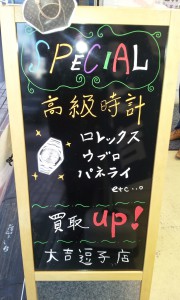 SPECIAL
高級時計
ロレックス
ウブロ
パネライ
etc...
買取 up!
大吉逗子店